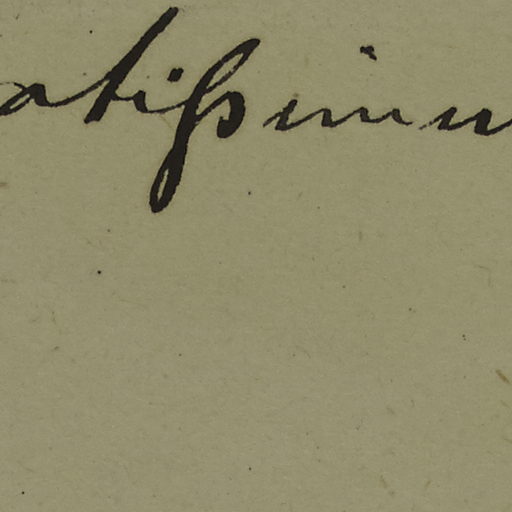 atißimu